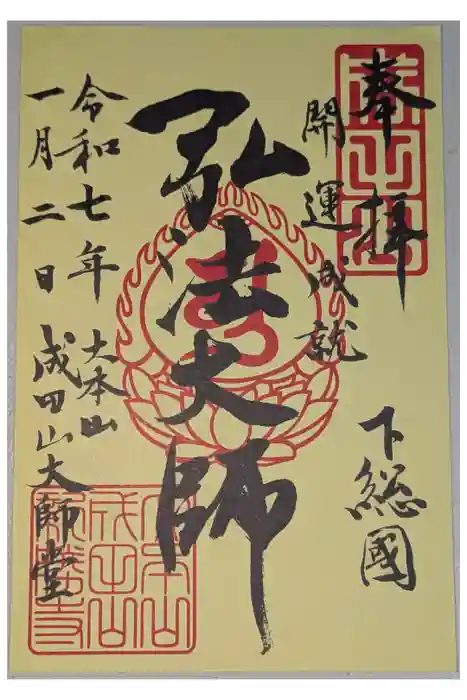 奉拝
下総國
開運成就
弘法大師
令和七年
一月二日
大本山
成田山大師堂